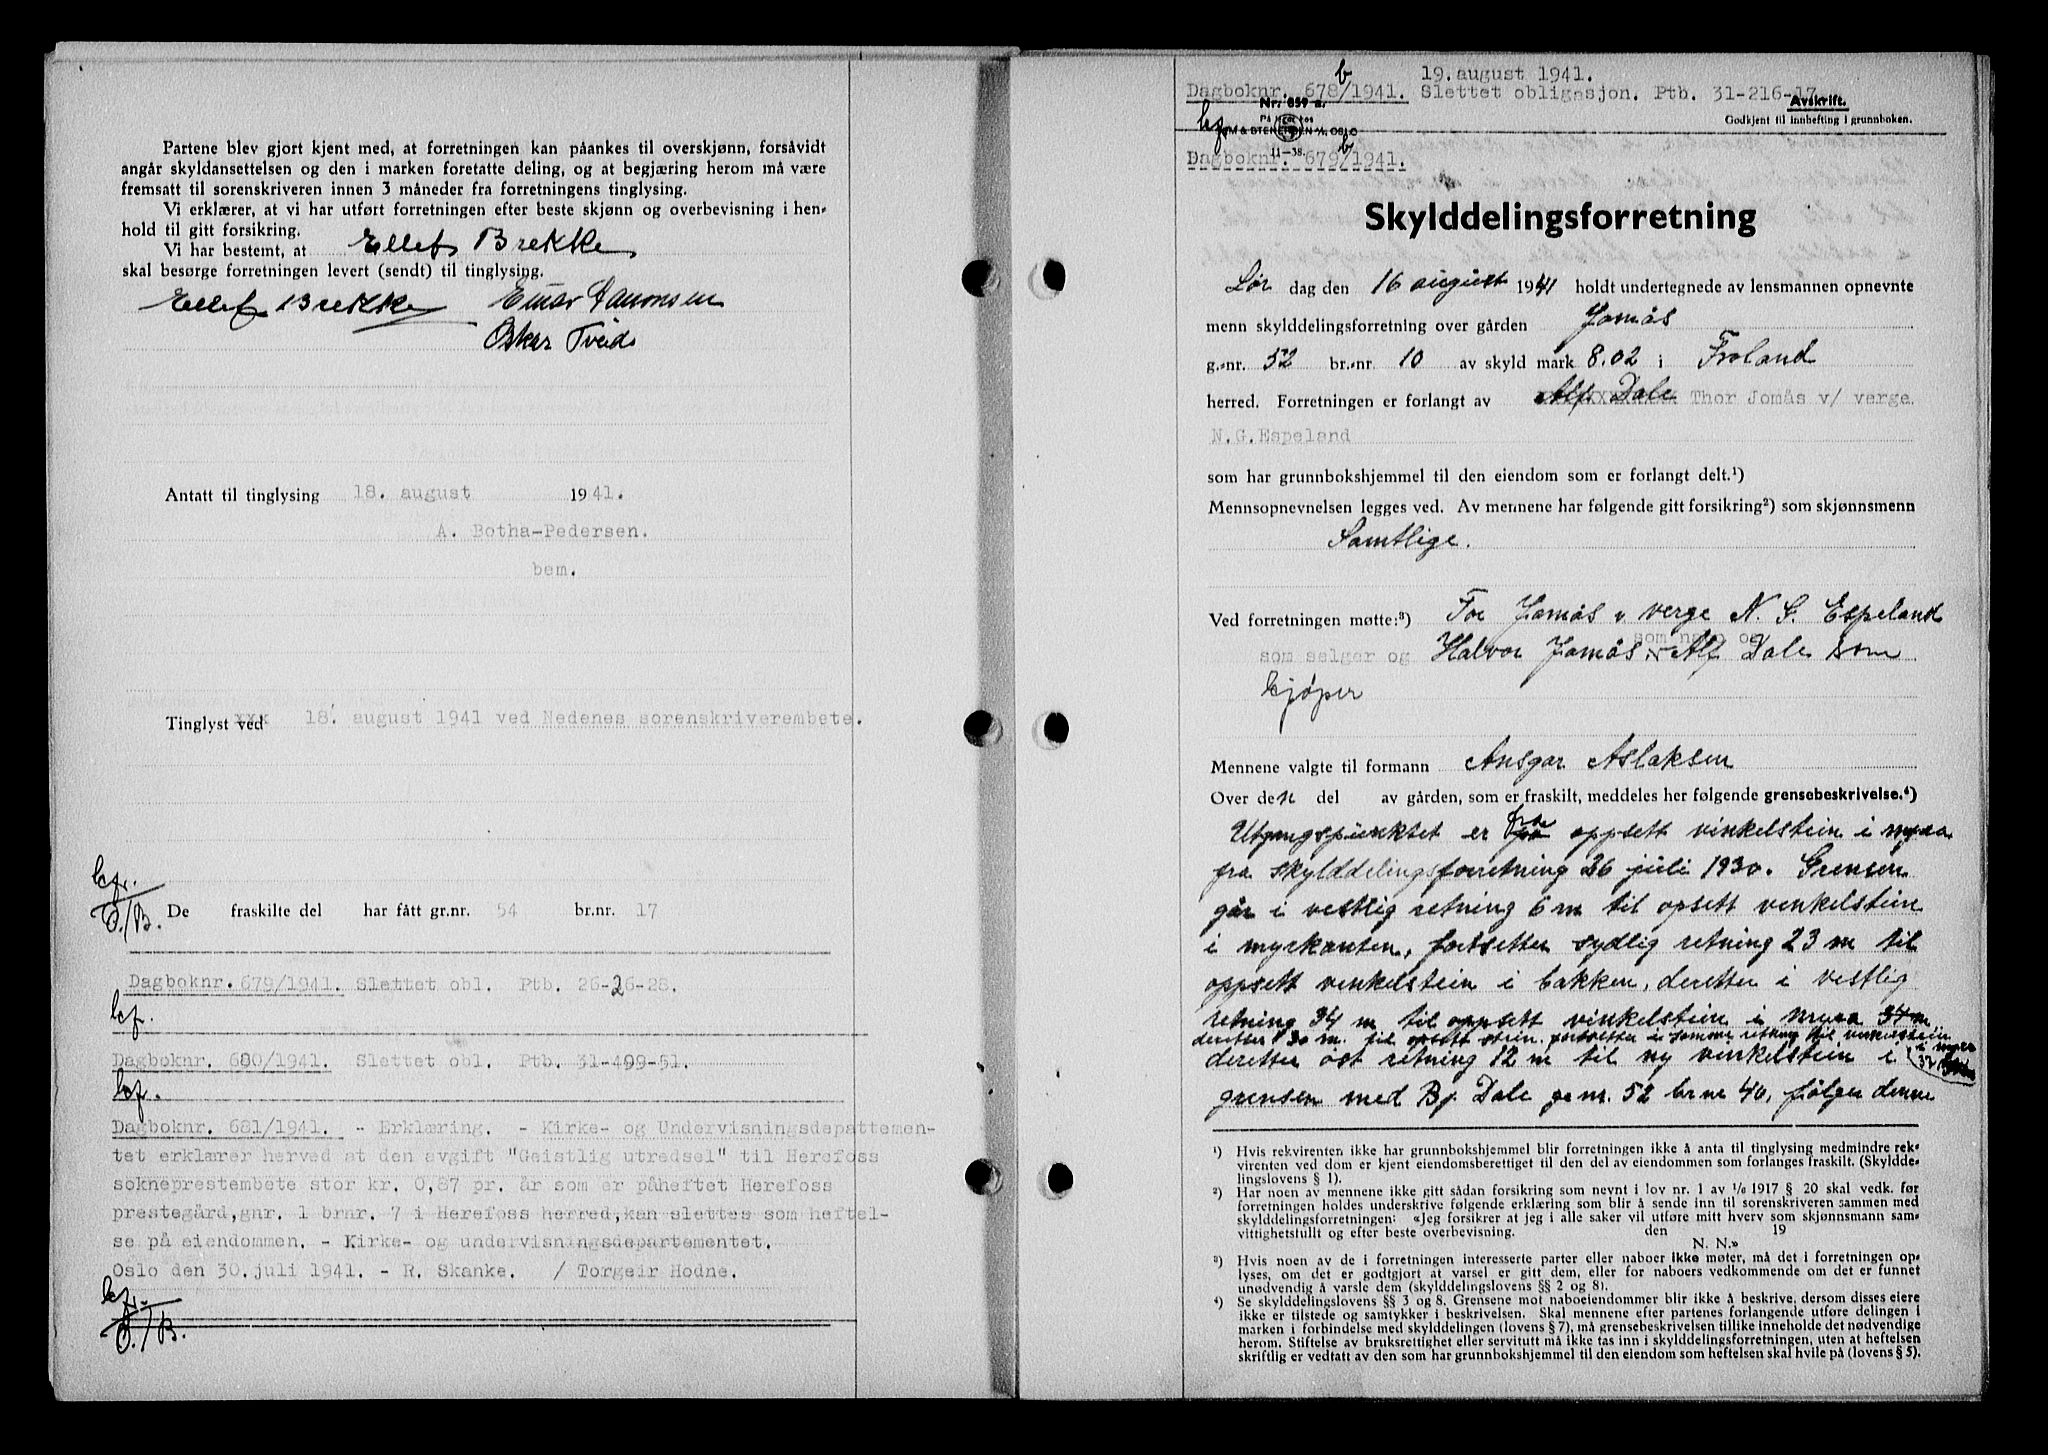 Partene blev gjort kjent med, at forretningen kan påankes til overskjønn, forsåvidt
angår skyldansettelsen og den i marken foretatte deling, og at begjæring herom må være
fremsatt til sorenskriveren innen 3 måneder fra forretningens tinglysing.
Vi erklærer, at vi har utført forretningen efter beste skjønn og overbevisning i hen-
hold til gitt forsikring.
Vi har bestemt, at Ellef Brekke
skal besørge forretningen levert (sendt) til tinglysing.
Ellef Brekke Einar
Oskar Tveide
Antatt til tinglysing 18. august 1941.
A. Botha-Pedersen.
bem.
Tinglyst ved xxx 18. august 1941 ved Nedenes sorenskriverembete.
kf.
Ø./B. De fraskilte del har fått gr.nr. 54 br.nr. 17
Dagboknr. 679/1941. Slettet obl. Ptb. 26-26-28.
kf.
Dagboknr. 680/1941. Slettet obl. Ptb. 31-499-51.
kf.
Dagboknr. 681/1941. - Erklæring. - Kirke- og Undervisningsdepattemen-
tet erklærer herved at den avgift "Geistlig utredsel" til Herefoss
sokneprestembete stor kr. 0,87 pr. år som er påheftet Herefoss
prestegård,gnr. 1 brnr. 7 i Herefoss herred,kan slettes som heftel-
se på eiendommen. - Kirke- og undervisningsdepartementet.
Oslo den 30.juli 1941. - R. Skanke. / Torgeir Hodne.
kf.
Ø./B.
19. august 1941.
Dagboknr. 678b/1941. Slettet obligasjon. Ptb. 31-216-17.
Nr. 859 a. Avskrift.
Godkjent til innhefting i grunnboken.
kf.
11-38.
Dagboknr. 679b/1941.
Skylddelingsforretning
Lør dag den 16 august 1941 holdt undertegnede av lensmannen opnevnte
menn skylddelingsforretning over gården Jomås
g.-nr. 52 br.-nr. 10 av skyld mark 8.02 i Froland
herred. Forretningen er forlangt av Alf Dale Thor Jomås v/ verge
N.G.Espeland
som har grunnbokshjemmel til den eiendom som er forlangt delt.¹)
Mennsopnevnelsen legges ved. Av mennene har følgende gitt forsikring²) som skjønnsmenn
Samtlige.
Ved forretningen møtte:³) Tor Jomås v verge N. G. Espeland
som selger og Halvor Jomås som nabo og Alf Dale som
kjøper
Mennene valgte til formann Ansgar Aslaksen
Over den del av gården, som er fraskilt, meddeles her følgende grensebeskrivelse.⁴)
Utgangspunktet er fra oppsett vinkelstein i myra
fra skylddelingsforretning 26 juli 1930. Grensen
går i vestlig retning 6 m til opsett vinkelstein
i myrkanten, fortsetter sydlig retning 23 m til
oppsett vinkelstein i bakken, deretter i vestlig
retning 34 m til oppsett vinkelstein i myra 34 m
deretter 30 m. til opsett stein. fortsetter i samme retning til vinkelstein
i myra
deretter øst retning 12 m til ny vinkelstein i 32
grensen med Bj Dale gr nr. 52 br nr 40, følger denne
¹) Hvis rekvirenten ikke har grunnbokshjemmel blir forretningen ikke å anta til tinglysing medmindre rek-
virenten ved dom er kjent eiendomsberettiget til den del av eiendommen som forlanges fraskilt. (Skyldde-
lingslovens § 1).
²) Har noen av mennene ikke gitt sådan forsikring som nevnt i lov nr. 1 av 1/6 1917 § 20 skal vedk. før
forretningen holdes underskrive følgende erklæring som blir å sende inn til sorenskriveren sammen med
skylddelingsforretningen: «Jeg forsikrer at jeg i alle saker vil utføre mitt hverv som skjønnsmann sam-
vittighetsfullt og efter beste overbevisning. den 19
N. N.»
³) Hvis noen av de i forretningen interesserte parter eller naboer ikke møter, må det i forretningen op-
lyses, om det er godtgjort at varsel er gitt dem, eller for naboers vedkommende om det er funnet
unødvendig å varsle dem (skylddelingslovens §§ 2 og 8).
⁴) Se skylddelingslovens §§ 3 og 8. Grensene mot naboeiendommer blir ikke å beskrive, dersom disses eiere
ikke er tilstede og samtykker i beskrivelsen. Skal mennene efter partenes forlangende utføre delingen i
marken i forbindelse med skylddelingen (lovens § 7), må grensebeskrivelsen tillike inneholde det nødvendige
herom. Stiftelse av bruksrettighet eller servitutt må ikke tas inn i skylddelingsforretningen, uten at heftelsen
skriftlig er vedtatt av den som har grunnbokshjemmel til den eiendom som heftelsen skal hvile på (lovens § 5).